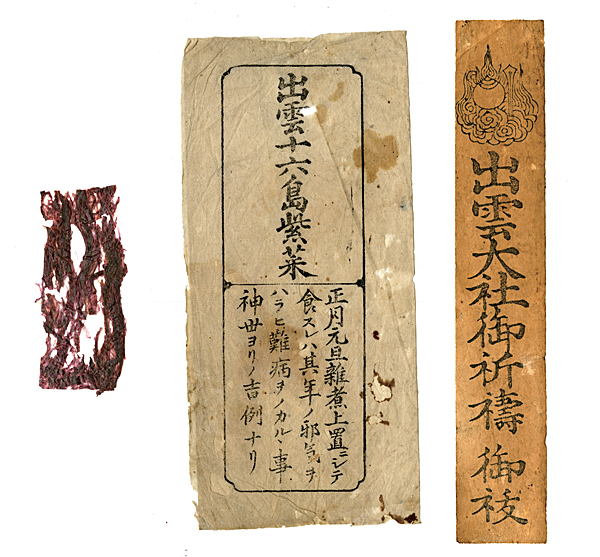 出雲大社御祈禱 御祓
出雲十六島紫菜
正月元旦雑煮上置ニシテ
食スレハ其年ノ邪気ヲ
ハラヒ難病ヲノカルヽ事
神世ヨリノ吉例ナリ